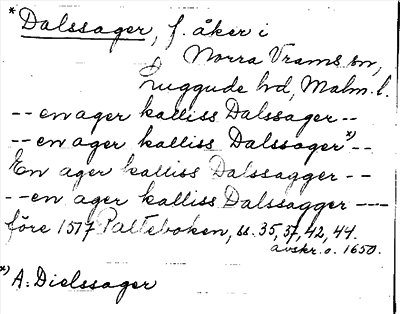 * Dalssager, f. åker i
Norra Vrams sn,
Luggude hd, Malm. l.
-- en ager kalliss Dalssager --
-- en ager kalliss Dalssager *) --
En ager kalliss Dalssagger --
-- en ager kalliss Dalssagger ---
före 1517 Palteboken, ss. 35, 37, 42, 44.
avskr. o. 1650.
*) A: Dielssager